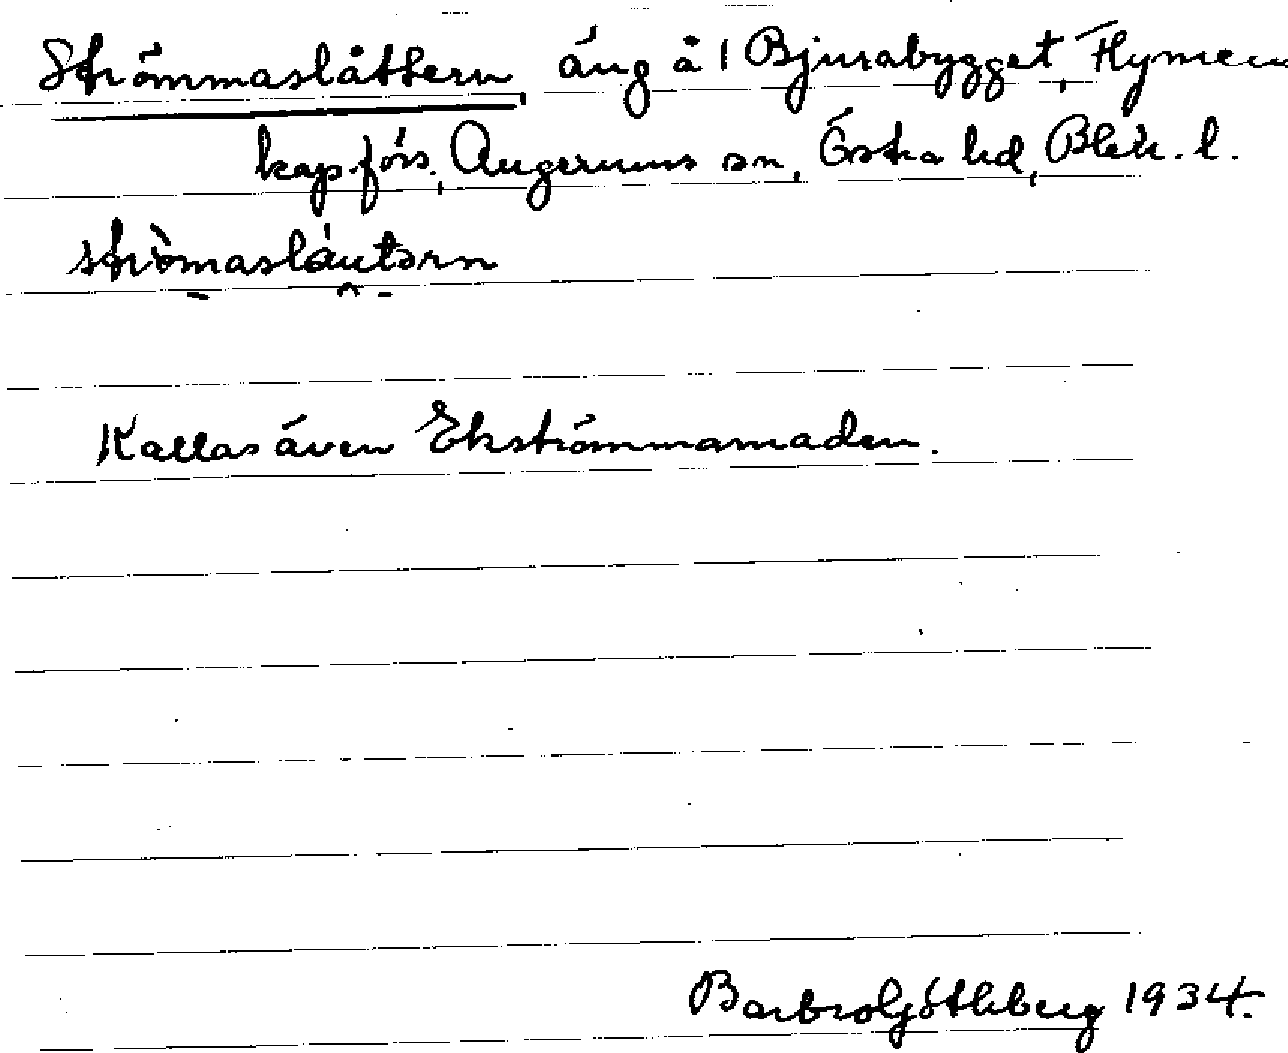 Strömmaslåttern, äng å 1 Bjurabygget, Flymen
kap.förs., Augerums sn, Östra hd, Blek. l.
strömaslåutərn
Kallas även Ekströmmamaden.
Barbro Götlberg 1934.